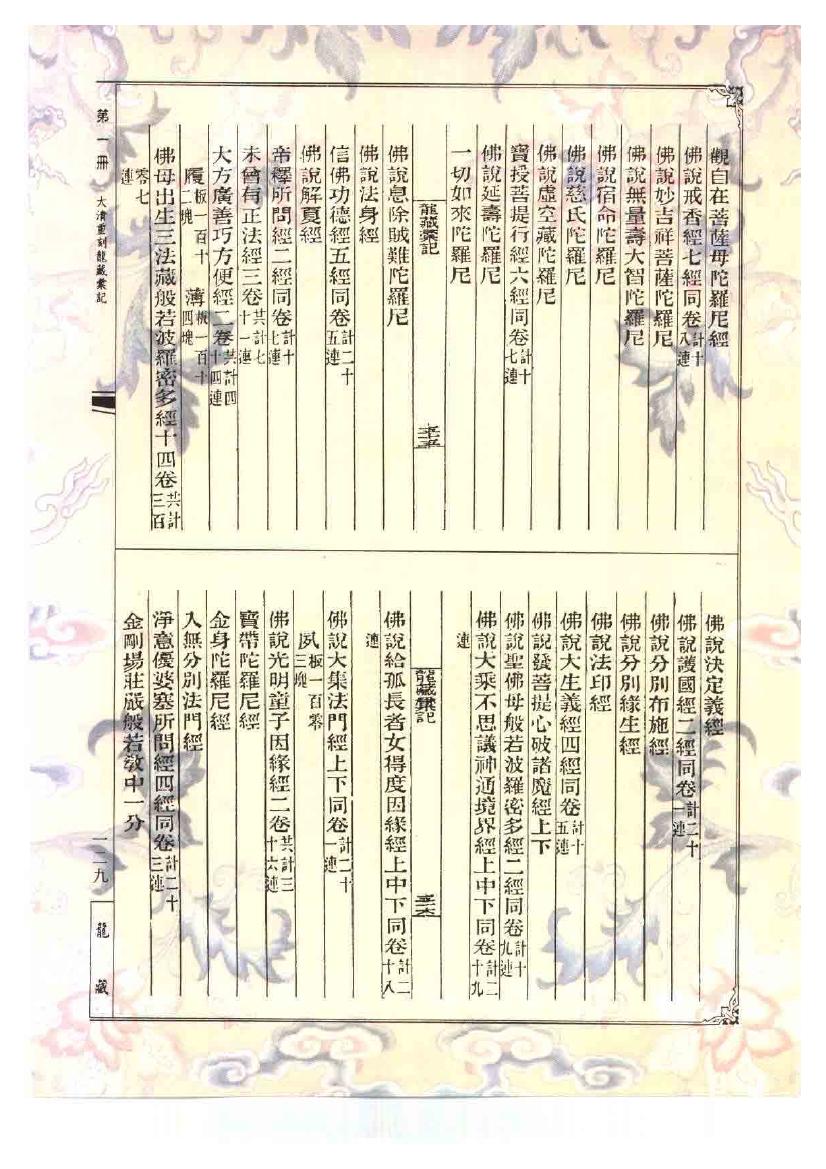 觀自在菩薩母陀羅尼經
佛說戒香經七經同卷計十八連
佛說妙吉祥菩薩陀羅尼
佛說無量壽大智陀羅尼
佛說宿命陀羅尼
佛說慈氏陀羅尼
佛說虛空藏陀羅尼
寶授菩提行經六經同卷計十七連
佛說延壽陀羅尼
一切如來陀羅尼
龍藏彙記
佛說息除賊難陀羅尼
佛說法身經
信佛功德經五經同卷計二十五連
佛說解夏經
帝釋所問經二經同卷計十七連
未曾有正法經三卷共計七十一連
大方廣善巧方便經二卷共計四十四連
履板一百十二塊 薄板一百十四塊
佛母出生三法藏般若波羅密多經十四卷共計三百
零七連
佛說決定義經
佛說護國經二經同卷計二十一連
佛說分別布施經
佛說分別緣生經
佛說法印經
佛說大生義經四經同卷計十五連
佛說發菩提心破諸魔經上下
佛說聖佛母般若波羅密多經二經同卷計十九連
佛說大乘不思議神通境界經上中下同卷計二十九
連
龍藏彙記
佛說給孤長者女得度因緣經上中下同卷計二十八
連
佛說大集法門經上下同卷計二十一連
夙板一百零三塊
佛說光明童子因緣經二卷共計三十六連
寶帶陀羅尼經
金身陀羅尼經
入無分別法門經
淨意優婆塞所問經四經同卷計二十三連
金剛場莊嚴般若教中一分
第一冊 大清重刻龍藏彙記
一二九
龍藏